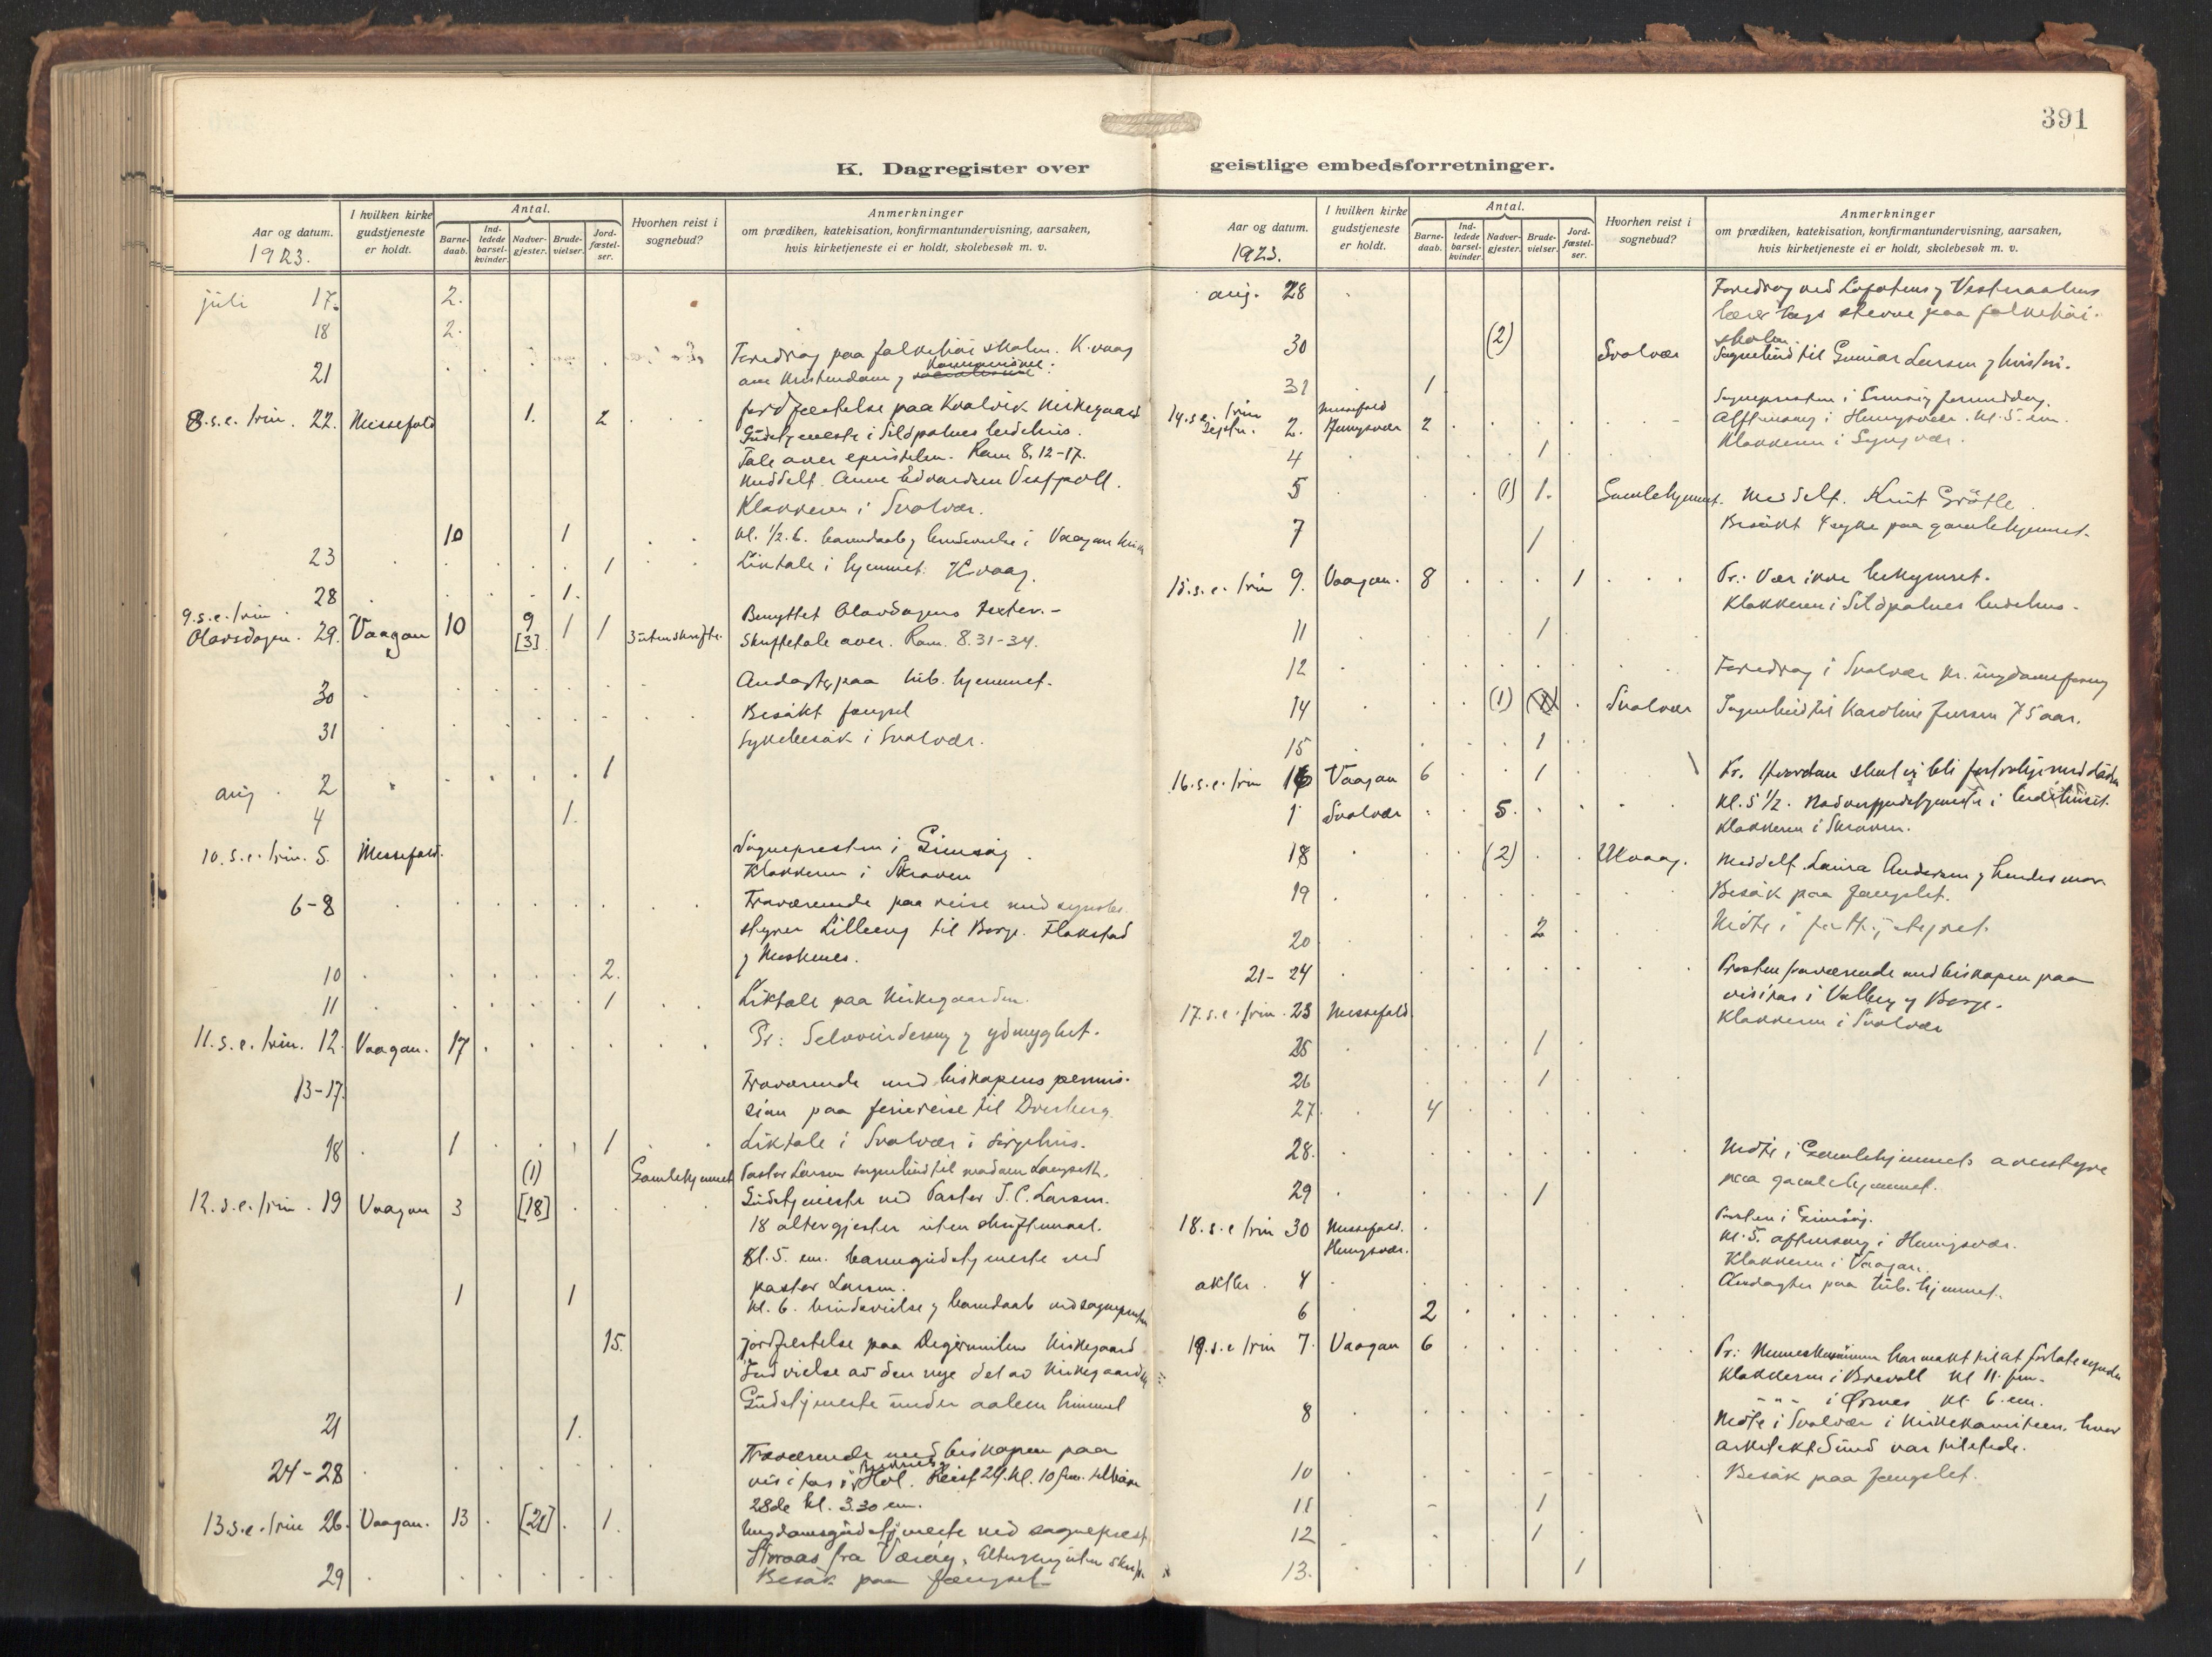 391
K. Dagregister over geistlige embedsforretninger.
Aar og datum.
1923.
I hvilken kirke gudstjeneste er holdt.
Antal.
Barne-daab.
Ind-ledede barsel-kvinder.
Nadver-gjester.
Brude-vielser.
Jord-fæstel-ser.
Hvorhen reist i sognebud?
Anmerkninger
om prædiken, katekisation, konfirmantundervisning, aarsaken,
hvis kirketjeneste ei er holdt, skolebesøk m. v.
juli 17. 2.
18 2.
21 Foredrag paa folkehöiskolen. K.vaag
om kristendom
8.s.e. trin. 22. Messefald 1. 2 Jordfæstelse paa kirkegaard
Gudstjeneste i Sildpolnes bedehus.
Tale over epistelen. Rom 8, 12-17.
Meddelt. Anne Edvardsen Vestpoll.
Klokkeren i Svolvær.
10 1 Kl. 1/2 6. barnedaab og brudevielse i Vaagan kirke
23 1 Liktale i hjemmet. K.vaag.
28 1.
9.s.e. trin.
Olavsdagen. 29. Vaagan 10 9 [3] 1 1 3 uten skrifte. Benyttet Olavsdagens texter.-
Skriftetale over. Rom. 8.31-34.
30 Andagt paa tub. hjemmet.
31 Besökt fængsel
Sykebesök i Svolvær.
aug. 2 1
4 1.
10.s.e. trin. 5. Messefald. Sognepresten i Gimsöy.
Klokkeren i Skroven
6-8 Fraværende paa reise med
styrer Lilleeng til Borge. Flakstad
og Moskenes.
10 2.
11 1 Liktale paa kirkegaarden.
11.s.e. trin. 12. Vaagan. 17 Pr: Selvvurdering og ydmyghet.
13-17. Fraværende med biskopens permis-
sion paa feriereise til Dverberg.
18 1 1 Liktale i Svolvær i sörgehus.
(1) Gamlehjemmet Pastor Larsen sognebud til madam Langseth.
12.s.e. trin. 19 Vaagan 3 [18] Gudstjeneste ved Pastor J. C. Larsen.
18 altergjester uten skriftemaal.
Kl. 5. em. barnegudstjeneste ved
pastor Larsen.
1 1 Kl. 6. brudevielse og barnedaab ved sognepresten
15. Jordfæstelse paa Digermulen kirkegaard
Indvielse av den nye del av kirkegaarden
Gudstjeneste under aapen himmel
21 1.
24-28 Fraværende med biskopen paa
visitas i Hol. Reist 24. kl. 10 fm.
28de kl. 3.30 em.
13.s.e. trin 26. Vaagan. 13 [21] 1. Ungdomsgudstjeneste ved sogneprest
fra Værøy. Altergang uten skrifte
29 Besök paa fængslet
Aar og datum.
1923.
I hvilken kirke gudstjeneste er holdt.
Antal.
Barne-daab.
Ind-ledede barsel-kvinder.
Nadver-gjester.
Brude-vielser.
Jord-fæstel-ser.
Hvorhen reist i sognebud?
Anmerkninger
om prædiken, katekisation, konfirmantundervisning, aarsaken,
hvis kirketjeneste ei er holdt, skolebesøk m. v.
aug. 28 Foredrag ved Lofotens og Vesteraalens
lærerlags stevne paa folkehöi-
skolen.
30 (2) Svolvær Sognebud til Gunnar Larsen og hustru.
31 1
14.s.e. trin Messefald Sognepresten i Gimsöy formiddag.
septbr. 2. Henningsvær 2 Aftensang i Henningsvær. kl. 5. em.
Klokkeren i
4 1
5 (1) 1. Gamlehjemmet. Meddelt. Knut Grötle.
7 1 Besökt 4 syke paa gamlehjemmet.
15.s.e. trin 9. Vaagan. 8 1 Pr.: Vær ikke bekymret.
Klokkeren i Sildpolnes bedehus.
11 1
12 Foredrag i Svolvær kr. ungdomsforening
14 (1) Svolvær Sognebud til Karoline Jensen 75 aar.
15 1
16.s.e. trin 16 Vaagan 6 1 Pr. Hvordan skal vi bli fortrolige med döden
Svolvær 5. Kl. 5 1/2. Nadvergudstjeneste i bedehuset.
Klokkeren i Skroven.
18 (2) Ukvaag. Meddelt Laura Andersen og hendes mor.
19 Besök paa fængslet.
20 2 Möte i fattigstyret.
21-24 Presten fraværende med biskopen paa
visitas i Valberg og Borge.
17.s.e. trin. 23 Messefald. Klokkeren i Svolvær
25 1
26 1
27 4
28. Möte i Gamlehjemmets overstyre
paa gamlehjemmet.
29 1
18.s.e. trin 30 Messefald. Presten i Gimsöy.
Henningsvær. Kl. 5. aftensang i Henningsvær.
Klokkeren i Vaagan.
oktbr. 4 Andagter paa tub. hjemmet.
6 2
19.s.e. trin 7. Vaagan 6 Pr.: Menneskesönnen har makt til at forlate synder
Klokkeren i Brevoll kl 11. fm.
- " - i Ørsnes kl. 6. em.
8 Möte i Svolvær i kirkekomiteen. hvor
arkitekt Sund var tilstede.
10 Besök paa fængslet.
11 1
12 1
13. 1